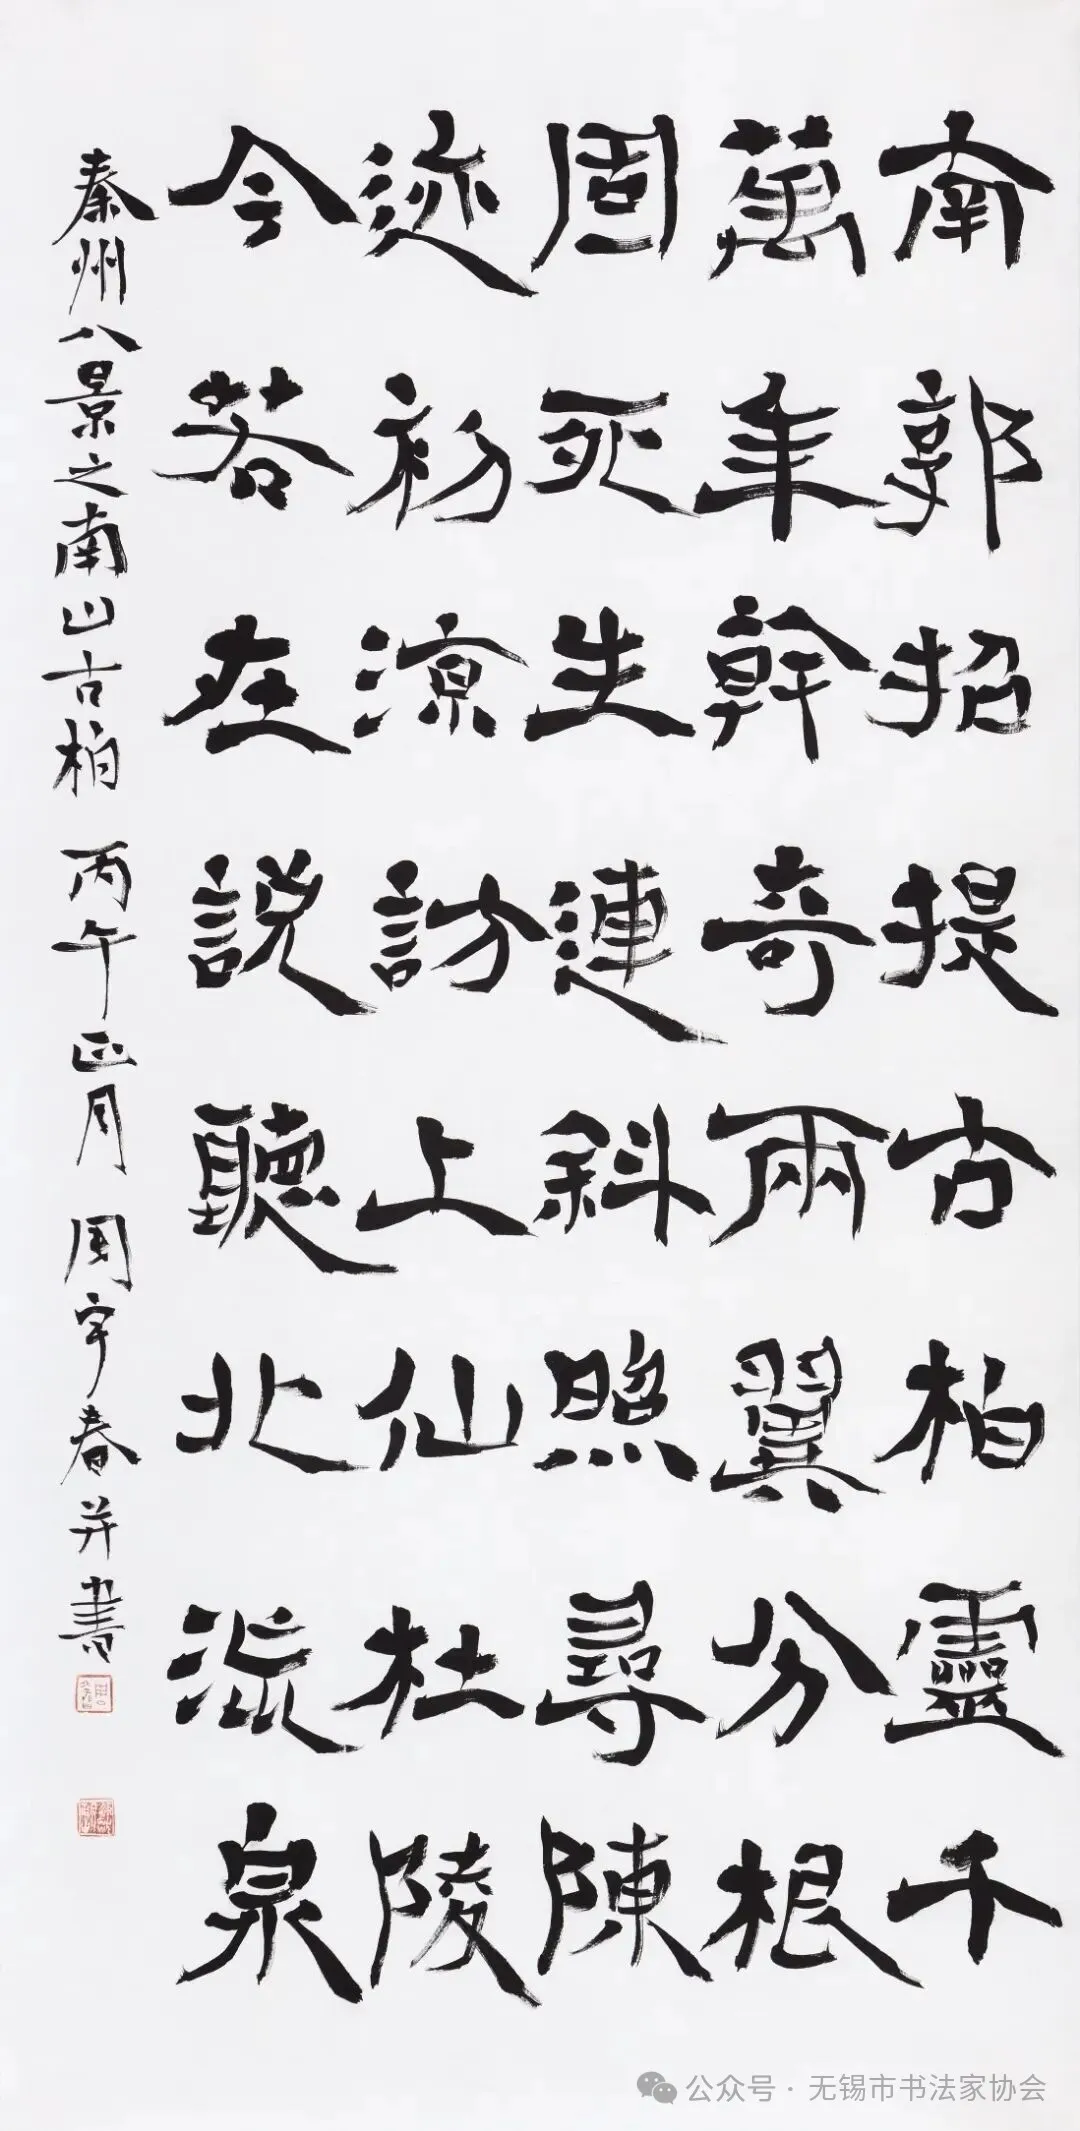 南郭招提古柏靈千
萬年幹奇兩翼分根
周死生連斜照尋陳
迹初涼訪上仙杜陵
今若在說聽北流泉
秦州八景之南山古柏 丙午正月 周宇春并書
公众号·无锡市书法家协会